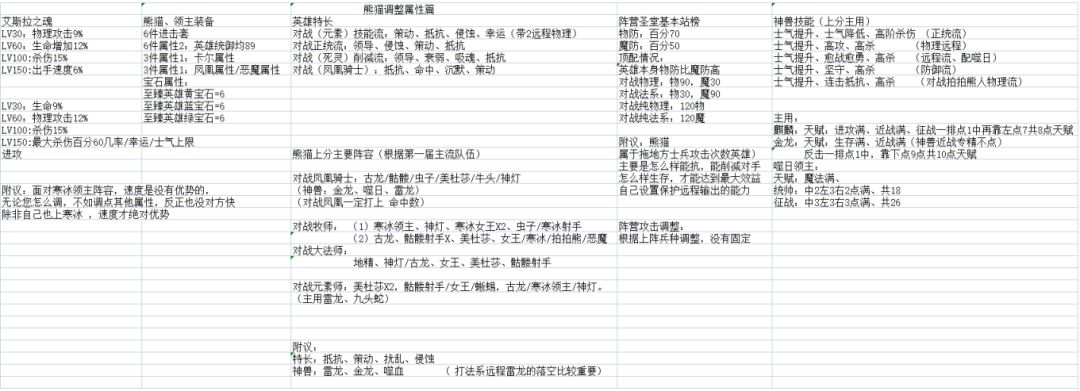 熊猫调整属性篇
艾斯拉之魂
LV30：物理攻击9%
LV60：生命增加12%
LV100:杀伤15%
LV150:出手速度6%
LV30：生命9%
LV60：物理攻击12%
LV100:杀伤15%
LV150:最大杀伤百分60几率/幸运/士气上限
进攻
附议：面对寒冰领主阵容，速度是没有优势的，
无论您怎么调，不如调点其他属性，反正也没对方快
除非自己也上寒冰 ，速度才绝对优势
熊猫、领主装备
6件进击套
6件属性2：英雄统御均89
3件属性1：卡尔属性
3件属性1：凤凰属性/恶魔属性
宝石属性：
至臻英雄黄宝石=6
至臻英雄蓝宝石=6
至臻英雄绿宝石=6
英雄特长
对战（元素）技能流：策动、抵抗、侵蚀、幸运（带2远程物理）
对战正统流：领导、侵蚀、策动、抵抗
对战（死灵）削减流：领导、衰弱、吸魂、抵抗
对战（凤凰骑士）：抵抗、命中、沉默、策动
熊猫上分主要阵容（根据第一届主流队伍）
对战凤凰骑士：古龙/骷髅/虫子/美杜莎/牛头/神灯
（神兽：金龙、噬日、雷龙）
（对战凤凰一定打上 命中数）
对战牧师： （1）寒冰领主、神灯、寒冰女王X2、虫子/寒冰射手
（2）古龙、骷髅射手X、美杜莎、女王/寒冰/拍拍熊/恶魔
对战大法师：
地精、神灯/古龙、女王、美杜莎、骷髅射手
对战元素师：美杜莎X2，骷髅射手/女王/蜥蜴，古龙/寒冰领主/神灯。
（主用雷龙、九头蛇）
附议：
特长：抵抗、策动、扰乱、侵蚀
神兽：雷龙、金龙、噬血 （ 打法系远程雷龙的落空比较重要）
阵营圣堂基本站榜
物防：百分70
魔防：百分50
顶配情况：
英雄本身物防比魔防高
对战物理：物90，魔30
对战法系：物30，魔90
对战纯物理：120物
对战纯法系：120魔
附议：熊猫
属于拖地方士兵攻击次数英雄）
主要是怎么样能抗，能削减对手
怎么样生存，才能达到最大效益
自己设置保护远程输出的能力
阵营攻击调整：
根据上阵兵种调整，没有固定
神兽技能（上分主用）
士气提升、士气降低、高阶杀伤 （正统流）
士气提升、高攻、高杀 （物理远程）
士气提升、愈战愈勇、高杀 （远程流、配噬日）
士气提升、坚守、高杀 （防御流）
士气提升、连击抵抗、高杀 （对战拍拍熊人物理流）
主用：
麒麟：天赋：进攻满、近战满、征战一排点1中再靠左点7共8点天赋
金龙：天赋，生存满、近战满（神兽近战专精不点）
反击一排点1中，靠下点9点共10点天赋
噬日领主：
天赋：魔法满、
统帅：中2左3右2点满、共18
征战：中3左3右3点满、共26